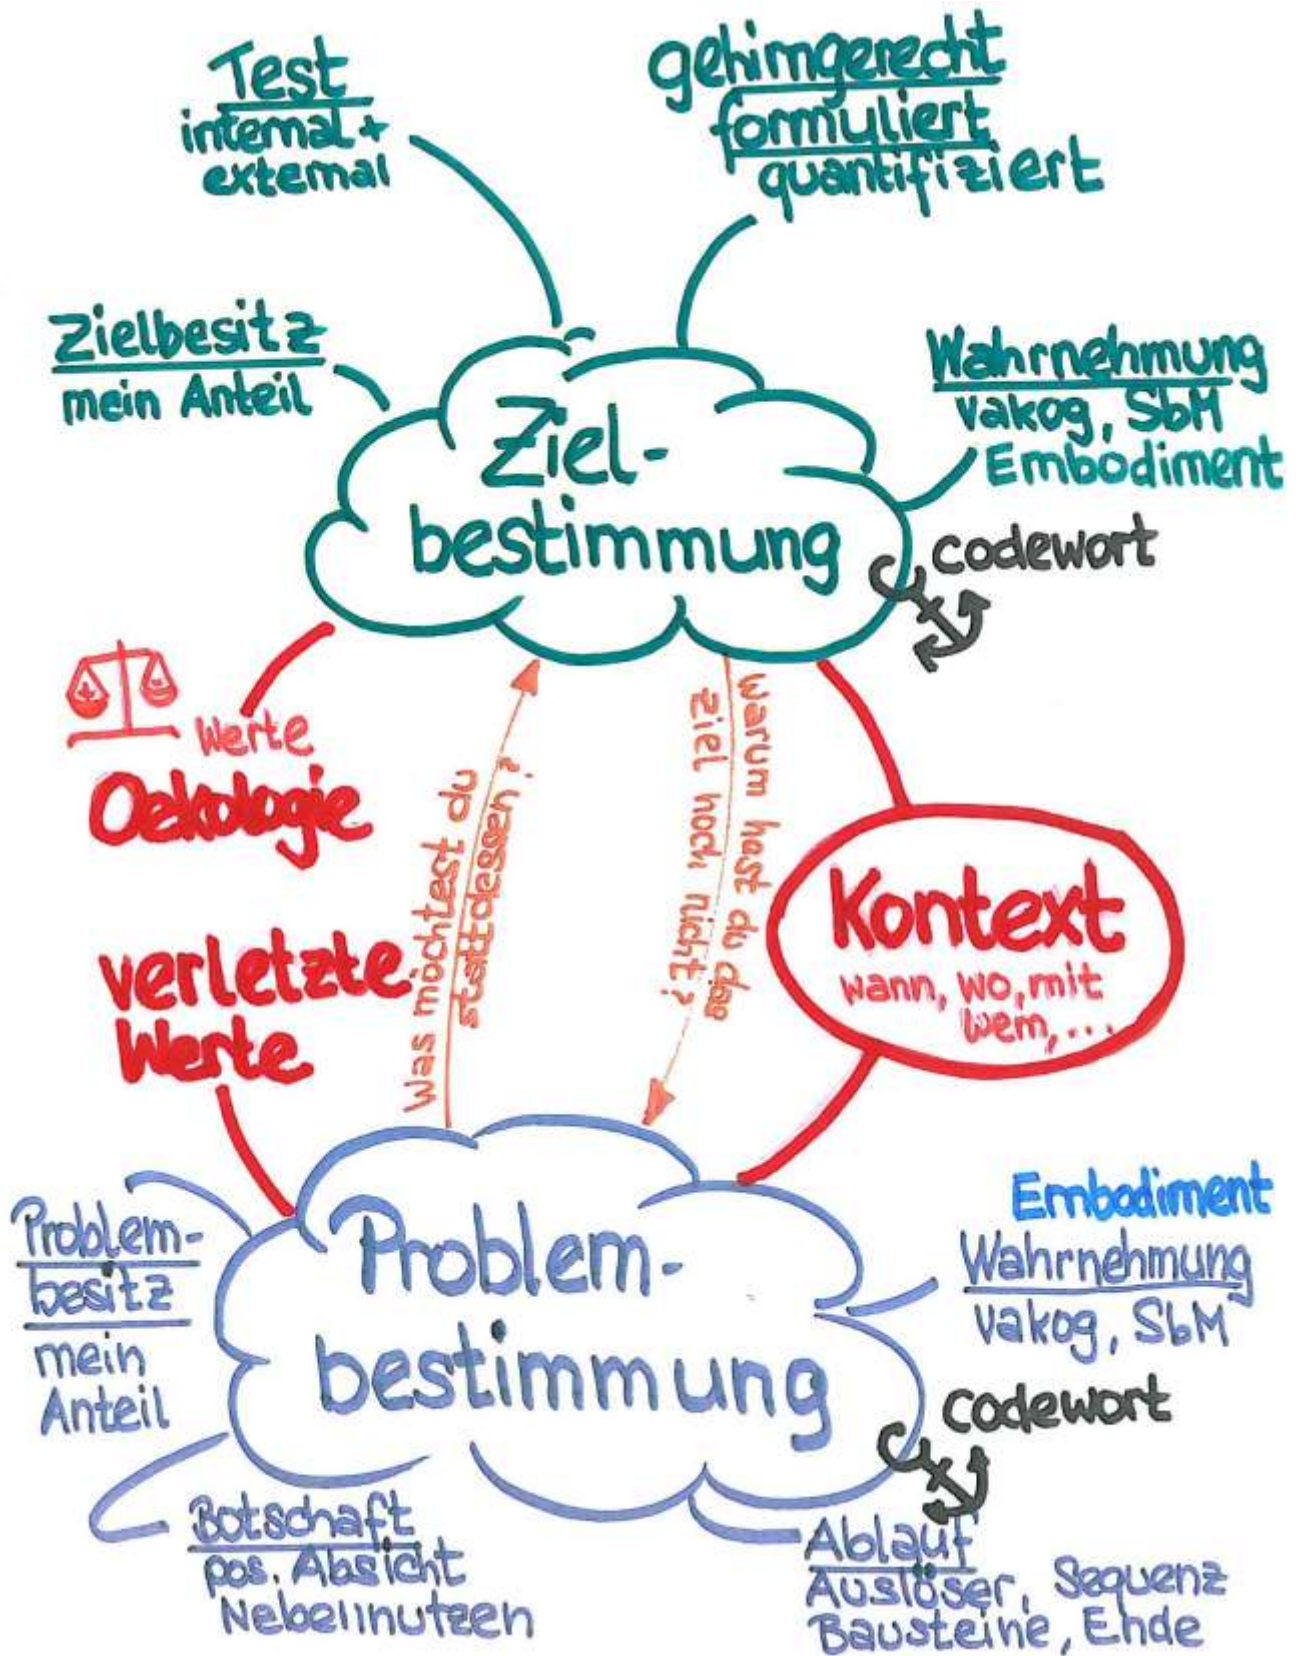 Test
internal +
external
gehirngerecht
formuliert
quantifiziert
Zielbesitz
mein Anteil
Wahrnehmung
vakog, SbM
Embodiment
Ziel-
bestimmung
codewort
Werte
Oekologie
Was möchtest du
stattdessen?
Warum hast du das
Ziel noch nicht?
Kontext
wann, wo, mit
wem, ...
verletzte
Werte
Problem-
besitz
mein
Anteil
Problem-
bestimmung
Embodiment
Wahrnehmung
vakog, SbM
codewort
Botschaft
pos. Absicht
Nebennutzen
Ablauf
Auslöser, Sequenz
Bausteine, Ende